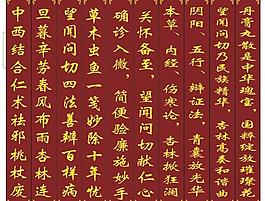 丹膏丸散是中华瑰宝，国粹绽放璀璨花
望闻问切乃民族精华，杏林高奏和谐曲
阴阳、五行、辩证法，青囊放光华
本草、内经、伤寒论，杏林狂澜
关怀备至，望闻问切献仁心
确诊入微，简便验廉施妙手
草木虫鱼一笺妙除十年忧
望闻问切四法善辨百样病
旦暮辛劳春风布雨杏林连
中西结合仁术祛邪桃杖废